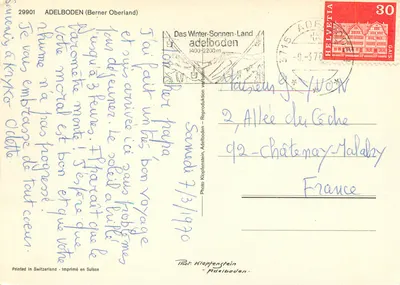 29901 ADELBODEN (Berner Oberland)
Samedi 7/3/1970
Mon cher papa
J'ai fait un très bon voyage
et suis arrivée ici sans problèmes
pour déjeuner. Le soleil a brillé
jusqu'à 3 heures. Il paraît que le
baromètre monte ! J'espère que
votre moral est bon et que votre
rhume n'a pas progressé !
Je vous embrasse de tout coeur.
Odette
Das Winter-Sonnen-Land
adelboden
1400-2200m
3715 ADELBODEN
HELVETIA
30
Monsieur J. YVON
2, Allée du Cèdre
92-Châtenay-Malabry
France
Photo Klopfenstein, Adelboden - Reproduktion
Phot. Klopfenstein
Adelboden
Printed in Switzerland - Imprimé en Suisse